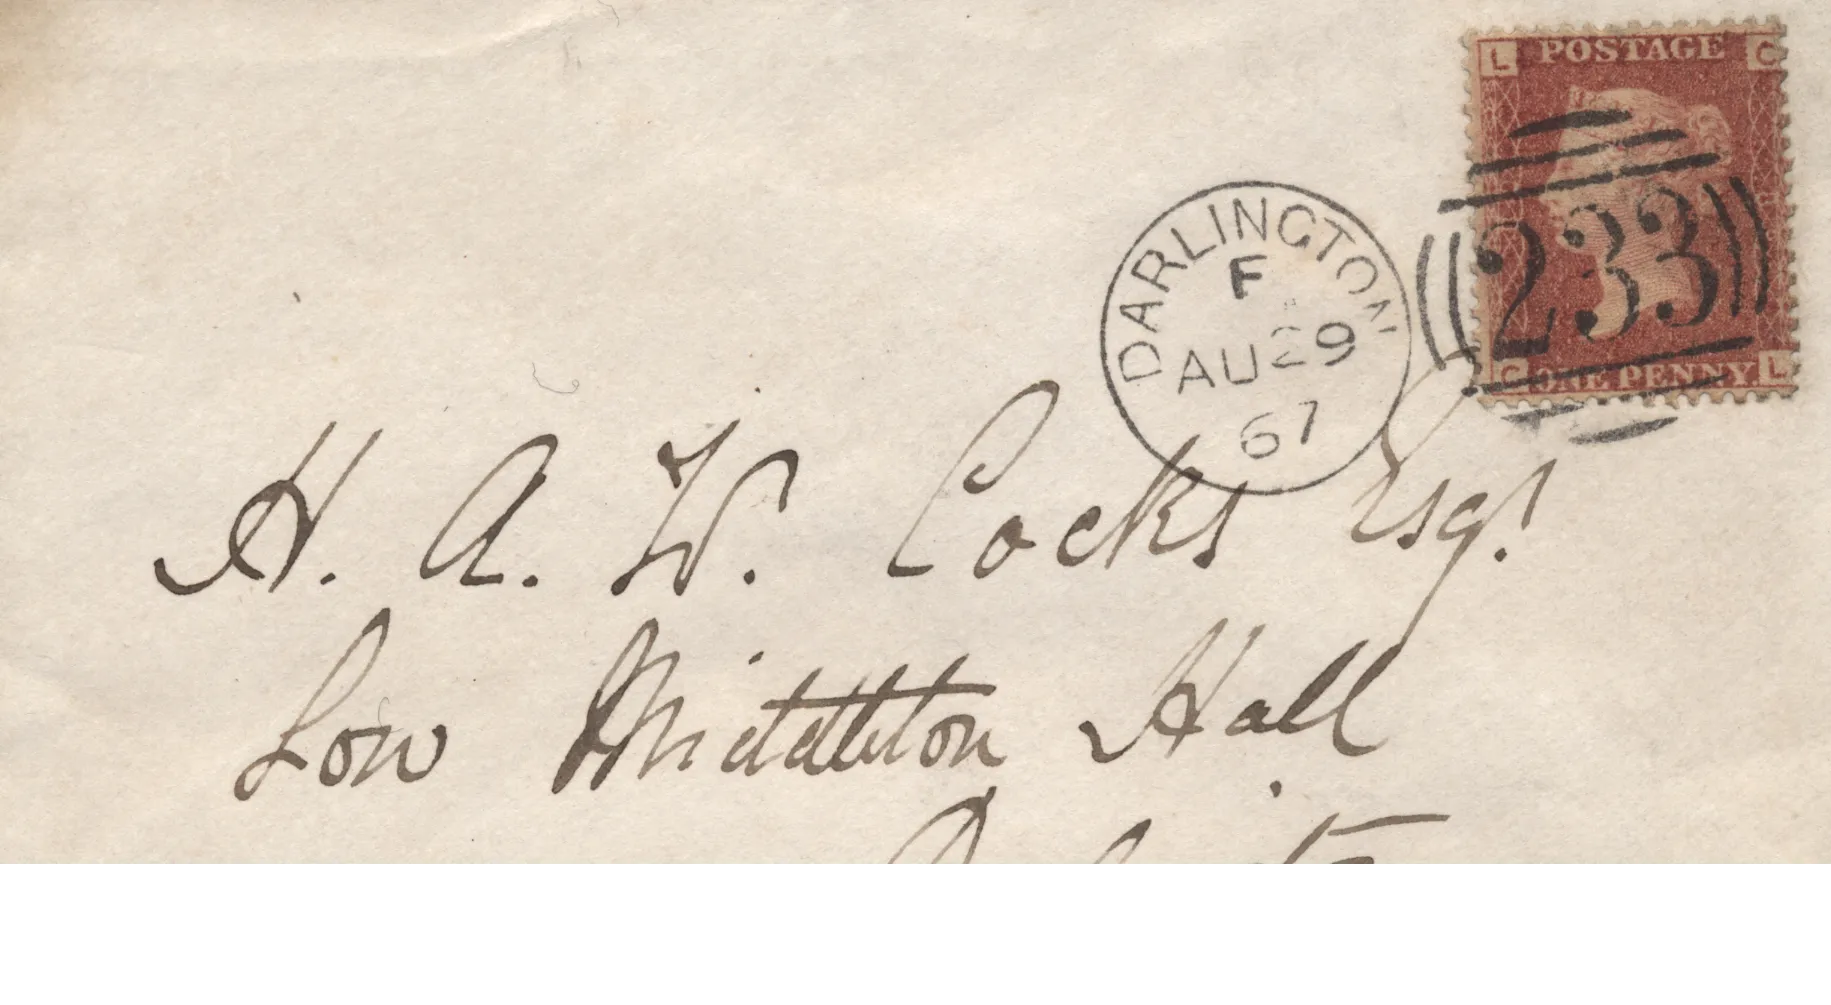 L POSTAGE C
233
C ONE PENNY. L
DARLINGTON
F
AU 29
67
H. A. W. Cocks Esqr.
Low Middleton Hall